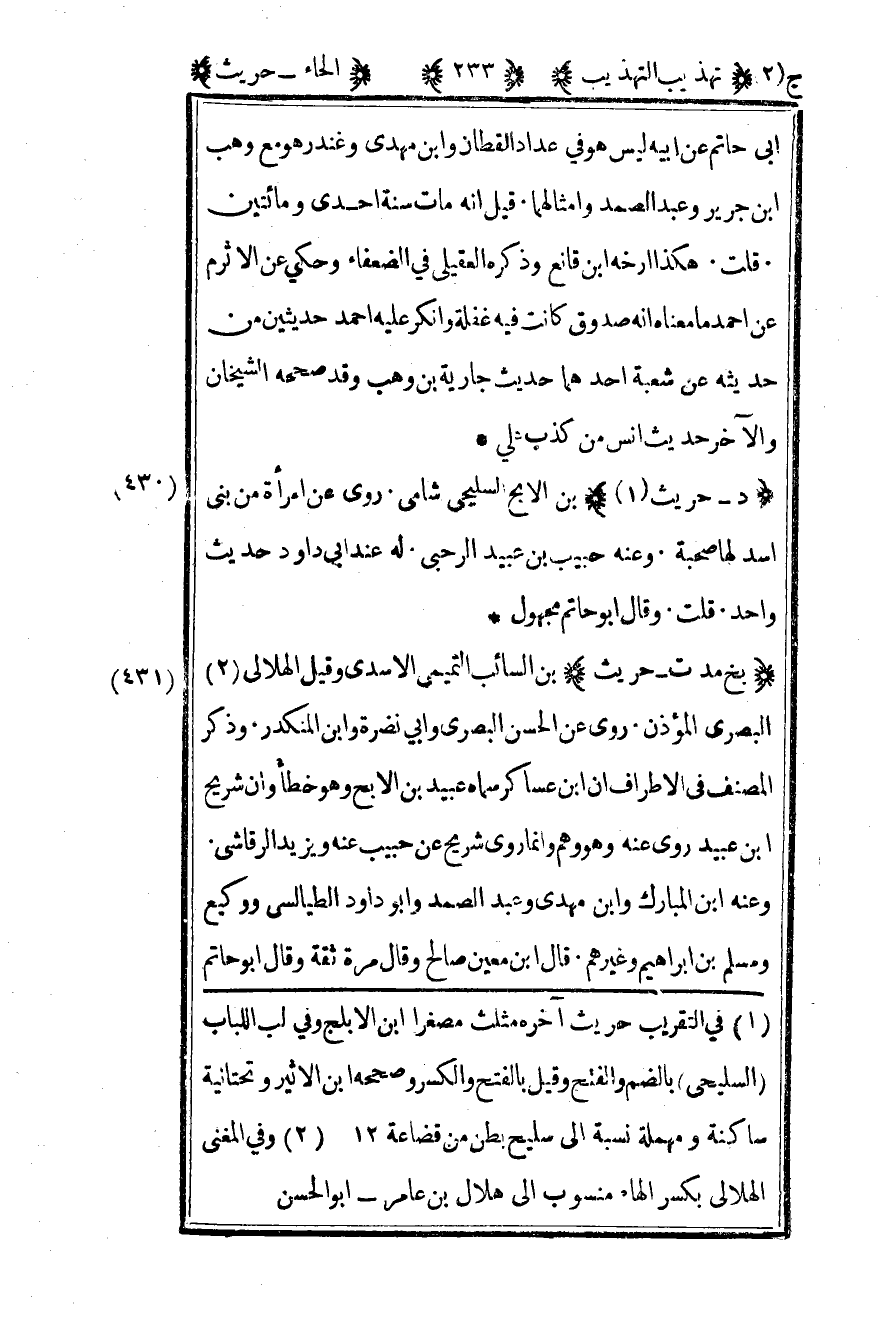 ج(٢ ﴿ تهذيب التهذيب ﴾ ﴿ ٢٣٣ ﴾ ﴿ الحاء ـ حريث ﴾
ابى حاتم عن ابيه ليس هو في عداد القطان وابن مهدى وغندر هو مع وهب
ابن جرير وعبد الصمد وامثالهما ٠ قيل انه مات سنة احدى ومائتين
٠ قلت ٠ هكذا ارخه ابن قانع وذكره العقيلى في الضعفاء وحكي عن الاثرم
عن احمد ما معناه انه صدوق كانت فيه غفلة وانكر عليه احمد حديثين من
حديثه عن شعبة احدهما حديث جارية بن وهب وقد صححه الشيخان
والآخر حديث انس من كذب علي *
﴿ د ـ حريث (١) ﴾ بن الابح السليحى شامى ٠ روى عن امرأة من بنى (٤٣٠)
اسد لها صحبة ٠ وعنه حبيب بن عبيد الرحبى ٠ له عند ابي داود حديث
واحد ٠ قلت ٠ وقال ابو حاتم مجهول *
﴿ بخ مد ت ـ حريث ﴾ بن السائب التميمى الاسدى وقيل الهلالى (٢) (٤٣١)
البصرى المؤذن ٠ روى عن الحسن البصرى وابي نضرة وابن المنكدر ٠ وذكر
المصنف فى الاطراف ان ابن عساكر سماه عبيد بن الابح وهو خطأ وان شريح
ابن عبيد روى عنه وهو وهم وانما روى شريح عن حبيب عنه ويزيد الرقاشى ٠
وعنه ابن المبارك وابن مهدى وعبد الصمد وابو داود الطيالسى ووكيع
ومسلم بن ابراهيم وغيرهم ٠ قال ابن معين صالح وقال مرة ثقة وقال ابو حاتم
(١) في التقريب حريث آخره مثلث مصغرا ابن الابلج وفي لب اللباب
(السليحى) بالضم والفتح وقيل بالفتح والكسر وصححه ابن الاثير وتحتانية
ساكنة ومهملة نسبة الى سليح بطن من قضاعة ١٢ (٢) وفي المغنى
الهلالى بكسر الهاء منسوب الى هلال بن عامر ـ ابو الحسن